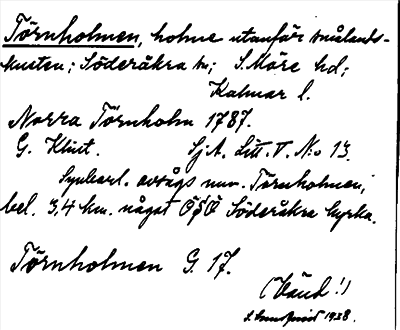 Törnholmen, holme utanför smålands-
kusten; Söderåkra sn; S. Möre hd;
Kalmar l.
Norra Törnholm 1787.
G. Klint. Sj. A. Litt. V. N:o 13.
Synbarl. avsågs nuv. Törnholmen,
bel. 3,4 km. något ÖSÖ Söderåkra kyrka.
Törnholmen G. 17.
(Vänd!)
1928.